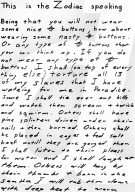 This is the Zodiac speaking
Being that you will not wear
some nice ⌖ buttons, how about
wearing some nasty ⌖ buttons.
Or any type of ⌖ buttons that
you can think up. If you do
not wear any type of ⌖
buttons, I shall (on top of every
thing else) torture all 13
of my slaves that I have
wateing for me in Paradice.
Some I shall tie over ant hills
and watch them scream + twich
and squirm. Others shall have
pine splinters driven under their
nails + then burned. Others shall
be placed in cages + fed salt
beef untill they are gorged then
I shall listen to their pleass
for water and I shall laugh at
them. Others will hang by
their thumbs + burn in the
sun then I will rub them down
with deep heat to warm